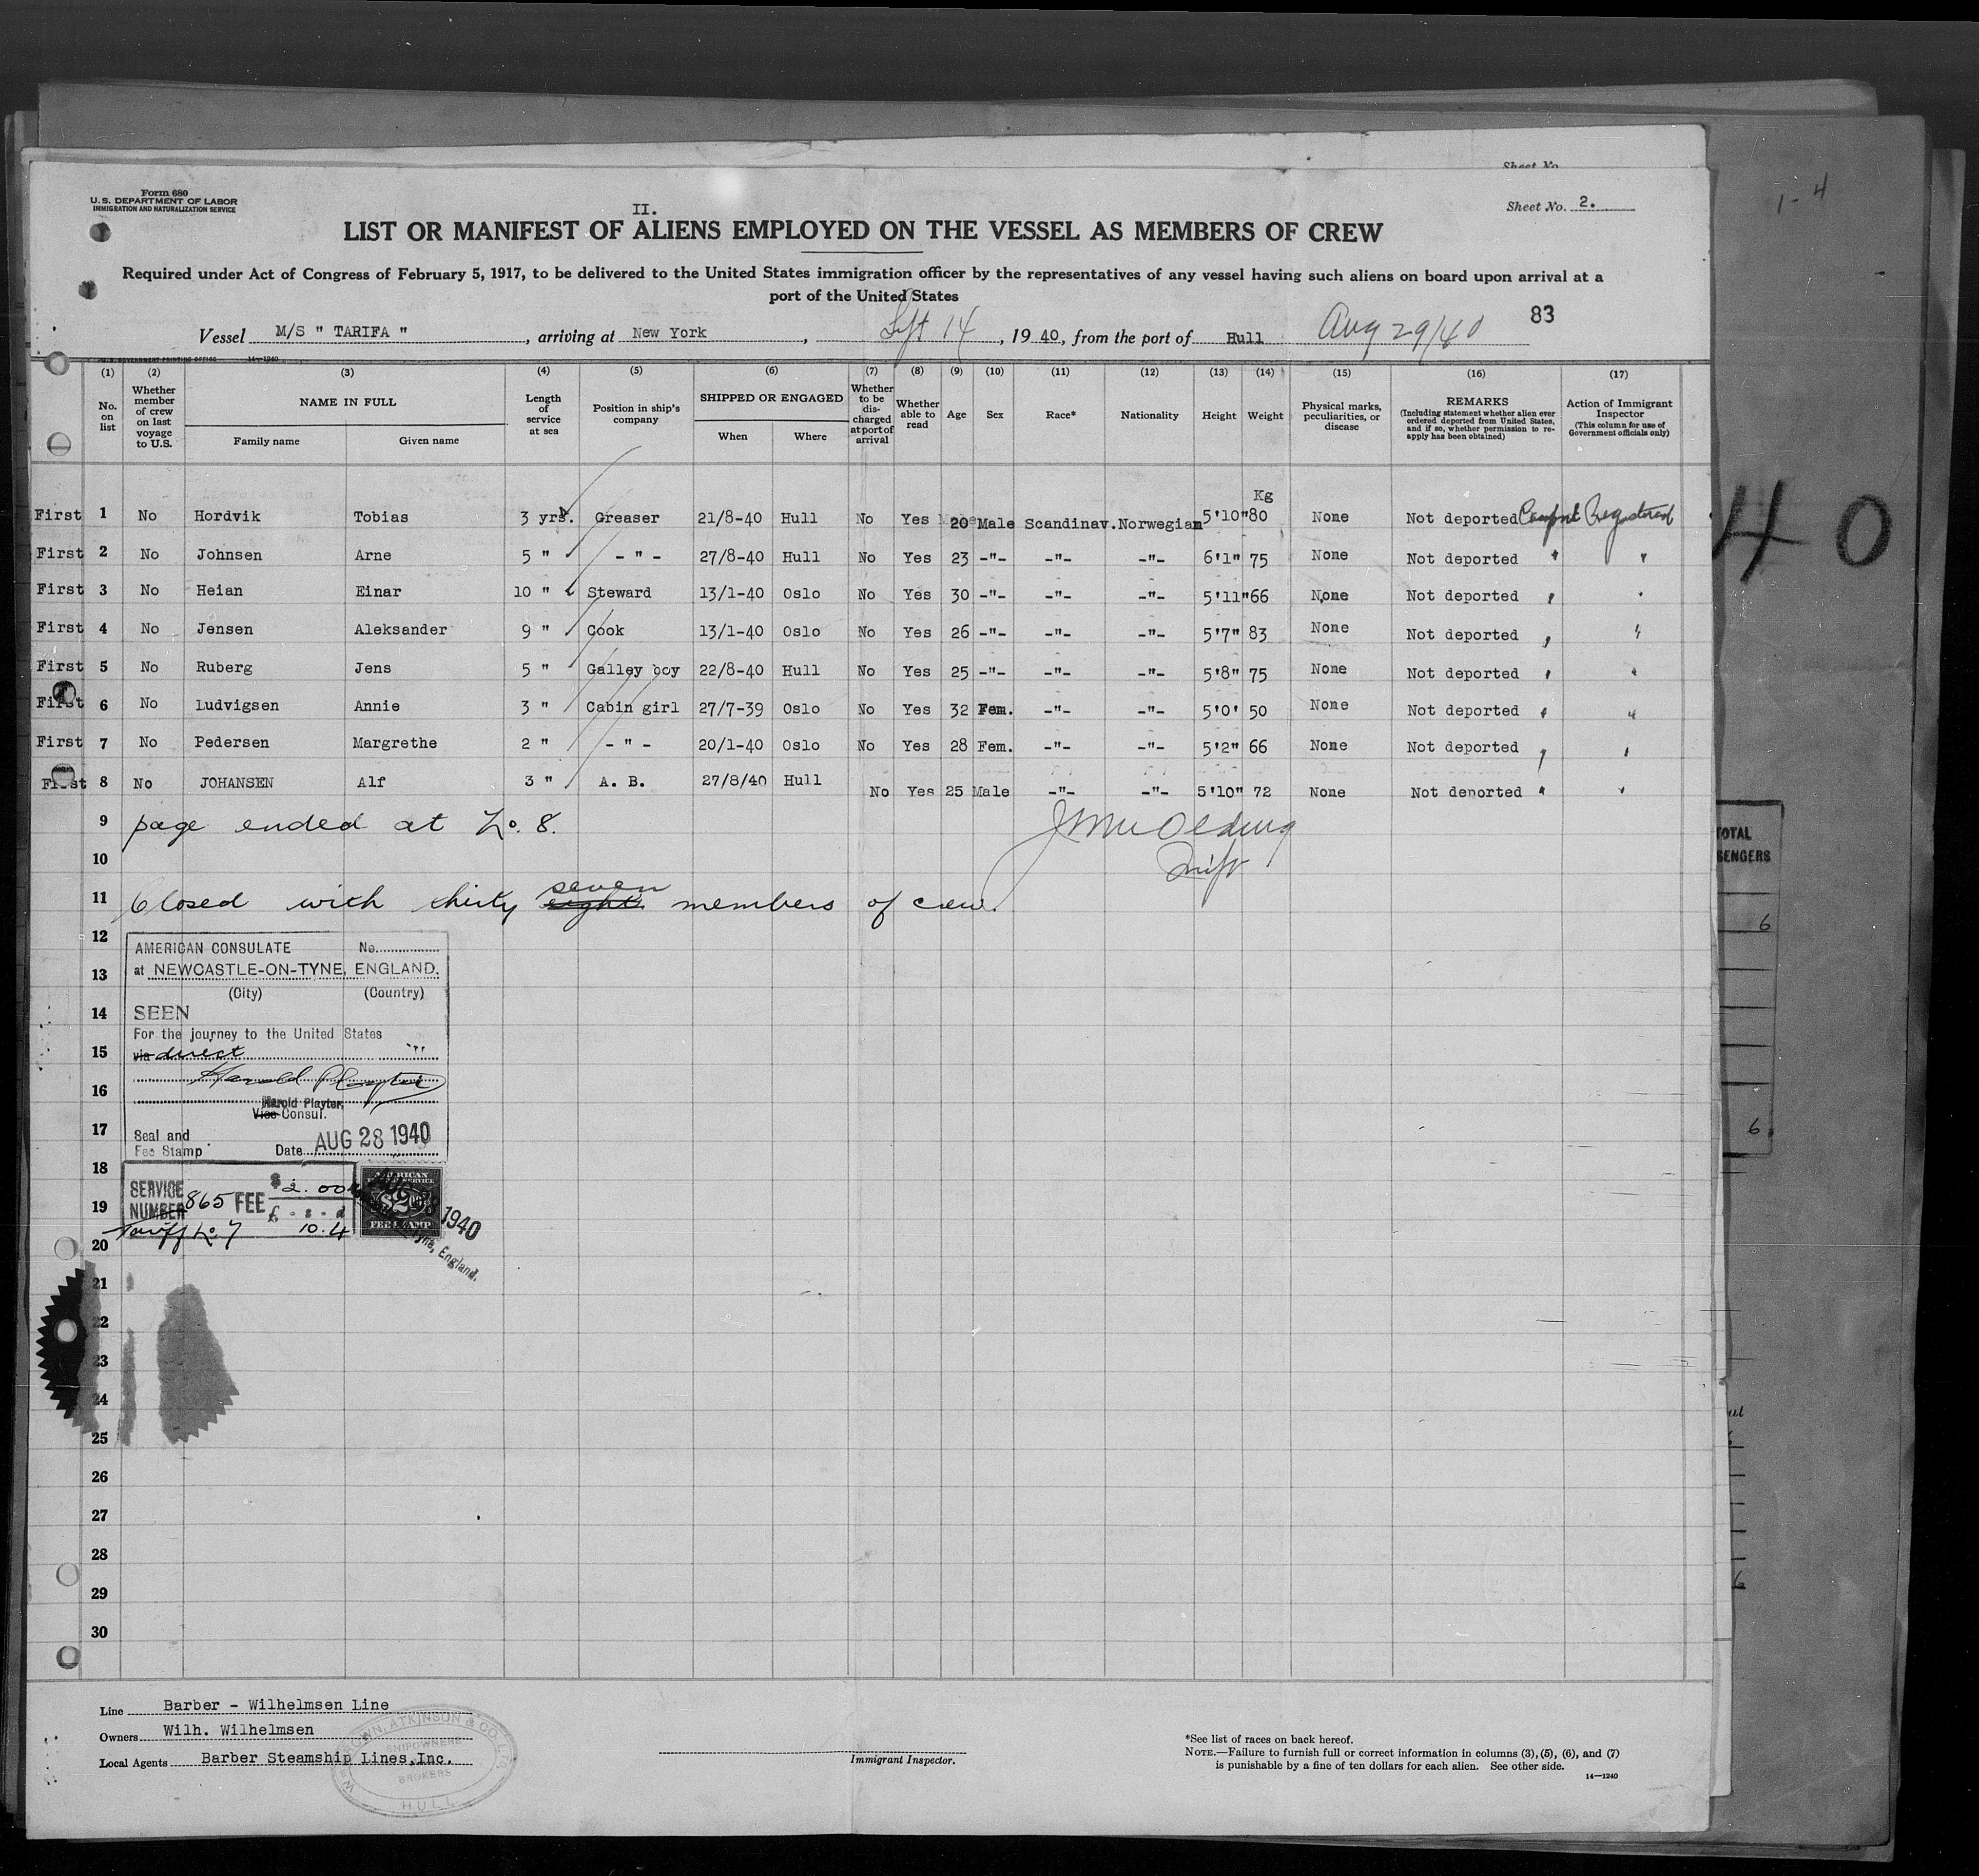 Sheet No.
Form 680
U. S. DEPARTMENT OF LABOR
IMMIGRATION AND NATURALIZATION SERVICE
Sheet No. 2.
II.
LIST OR MANIFEST OF ALIENS EMPLOYED ON THE VESSEL AS MEMBERS OF CREW
Required under Act of Congress of February 5, 1917, to be delivered to the United States immigration officer by the representatives of any vessel having such aliens on board upon arrival at a
port of the United States
83
Vessel M/S " TARIFA " , arriving at New York , Sept 14 , 1940, from the port of Hull Aug 29/40
U. S. GOVERNMENT PRINTING OFFICE 14—1240
(1) (2) (3) (4) (5) (6) (7) (8) (9) (10) (11) (12) (13) (14) (15) (16) (17)
No. on list
Whether member of crew on last voyage to U.S.
NAME IN FULL
Family name Given name
Length of service at sea
Position in ship's company
SHIPPED OR ENGAGED
When Where
Whether to be discharged at port of arrival
Whether able to read
Age Sex Race* Nationality Height Weight
Physical marks, peculiarities, or disease
REMARKS
(Including statement whether alien ever ordered deported from United States, and if so, whether permission to re-apply has been obtained)
Action of Immigrant Inspector
(This column for use of Government officials only)
Kg
First 1 No Hordvik Tobias 3 yrs. Greaser 21/8-40 Hull No Yes 20 Male Scandinav. Norwegian 5'10" 80 None Not deported Registered
First 2 No Johnsen Arne 5 " - " - 27/8-40 Hull No Yes 23 -"- -"- -"- 6'1" 75 None Not deported " "
First 3 No Heian Einar 10 " Steward 13/1-40 Oslo No Yes 30 -"- -"- -"- 5'11" 66 None Not deported " "
First 4 No Jensen Aleksander 9 " Cook 13/1-40 Oslo No Yes 26 -"- -"- -"- 5'7" 83 None Not deported " "
First 5 No Ruberg Jens 5 " Galley boy 22/8-40 Hull No Yes 25 -"- -"- -"- 5'8" 75 None Not deported " "
First 6 No Ludvigsen Annie 3 " Cabin girl 27/7-39 Oslo No Yes 32 Fem. -"- -"- 5'0' 50 None Not deported " "
First 7 No Pedersen Margrethe 2 " - " - 20/1-40 Oslo No Yes 28 Fem. -"- -"- 5'2" 66 None Not deported " "
First 8 No JOHANSEN Alf 3 " A. B. 27/8/40 Hull No Yes 25 Male -"- -"- 5'10" 72 None Not deported " "
9 page ended at No. 8.
10
11 Closed with thirty eight seven members of crew.
12
AMERICAN CONSULATE No.
13
at NEWCASTLE-ON-TYNE, ENGLAND.
(City) (Country)
14 SEEN
For the journey to the United States
15 via direct
16 Harold Playter
Harold Playter,
Vice Consul.
17 Seal and
Fee Stamp Date AUG 28 1940
18
SERVICE NUMBER 865 FEE $ 2.00
19 £ - s - d
Tariff No. 7 10.4
AMERICAN
$2.00
FEE STAMP
1940
Tyne, England.
20
21
22
23
24
25
26
27
28
29
30
Line Barber - Wilhelmsen Line
Owners Wilh. Wilhelmsen
Local Agents Barber Steamship Lines,Inc.
BROWN, ATKINSON & CO. LTD.
SHIPOWNERS
BROKERS
HULL
Immigrant Inspector.
*See list of races on back hereof.
NOTE.—Failure to furnish full or correct information in columns (3), (5), (6), and (7)
is punishable by a fine of ten dollars for each alien. See other side.
14—1240
1-4
40
TOTAL
6
6